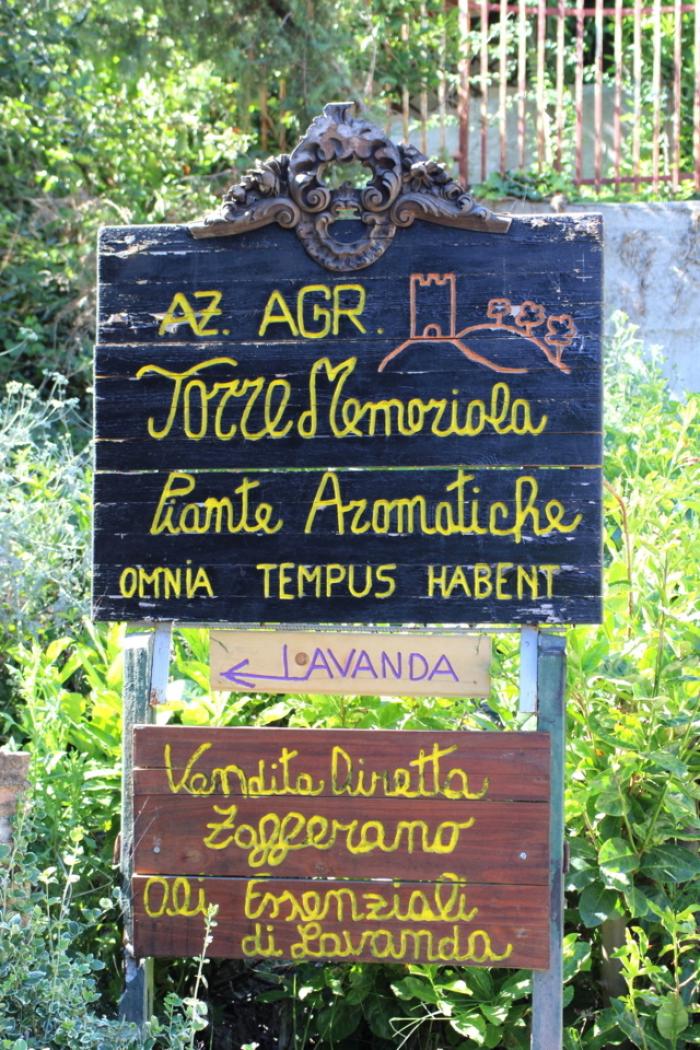 AZ. AGR.
Torre Memoriola
Piante Aromatiche
OMNiA TEMPUS HABENT
LAVANDA
Vendita Diretta
Zafferano
Oli Essenziali
di Lavanda